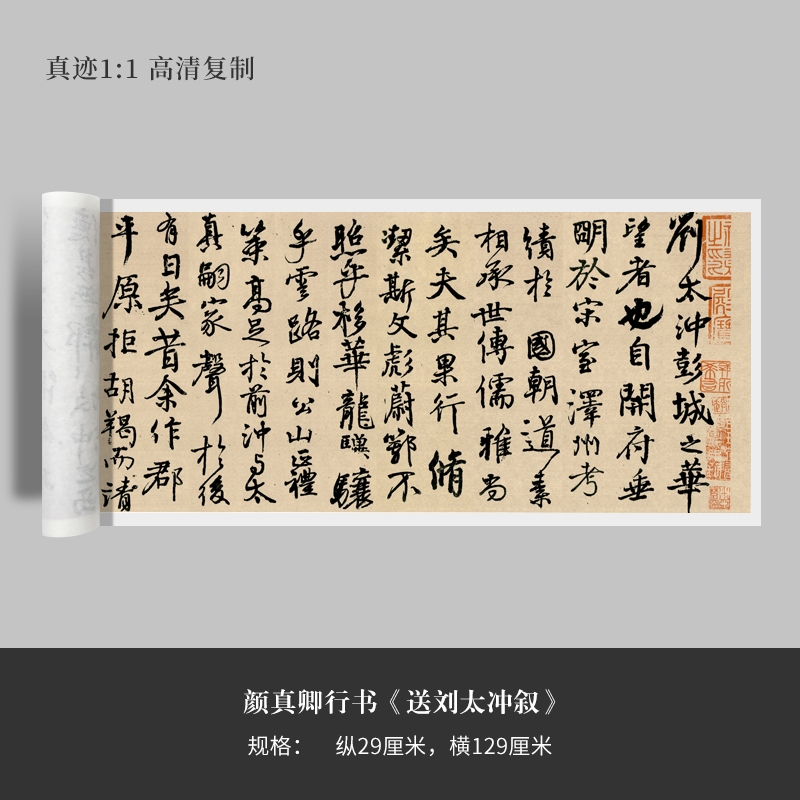 真迹1:1 高清复制
劉太冲彭城之華
望者也自開府垂
明於宋室澤州考
績於 國朝道素
相承世傳儒雅尚
矣夫其果行脩
潔斯文彪蔚鄂不
照乎移華龍驤
乎雲路則公山正禮
策高足於前冲与太
真嗣家聲於後
有日矣昔余作郡
平原拒胡羯而清
颜真卿行书《送刘太冲叙》
规格： 纵29厘米，横129厘米